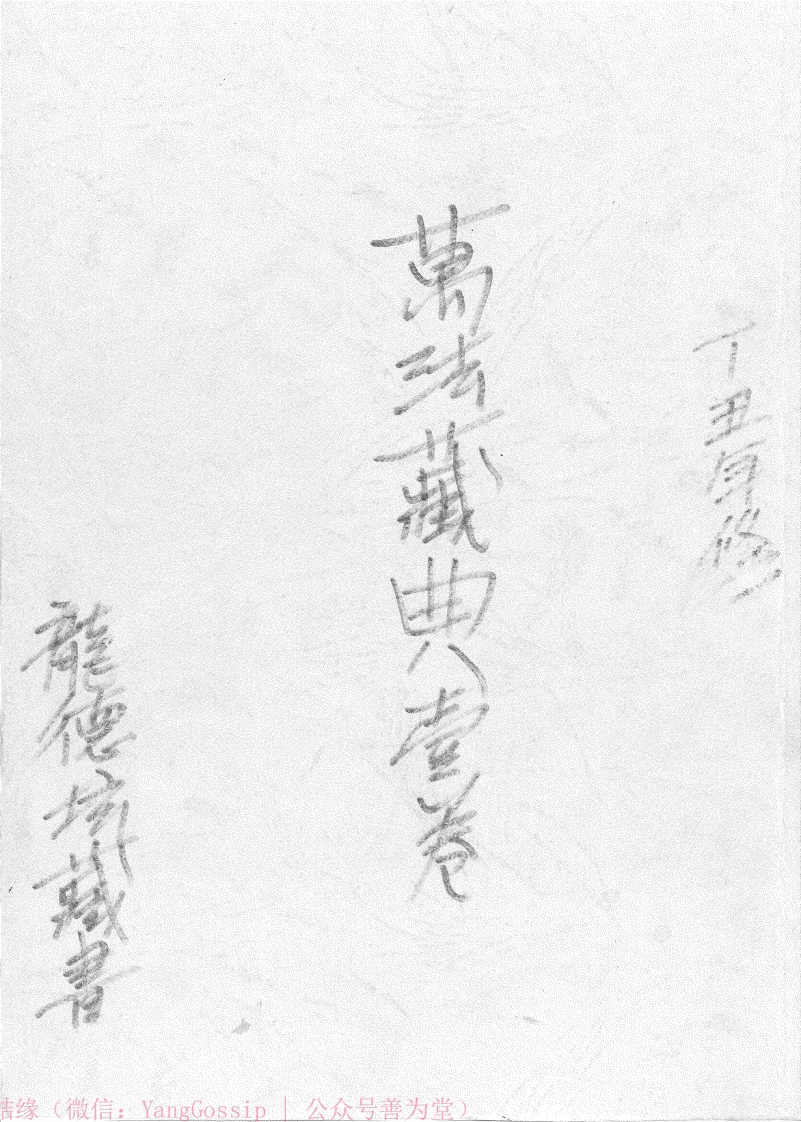 丁丑年修
萬法藏典壹卷
龍德坛藏書
结缘（微信：YangGossip | 公众号善为堂）